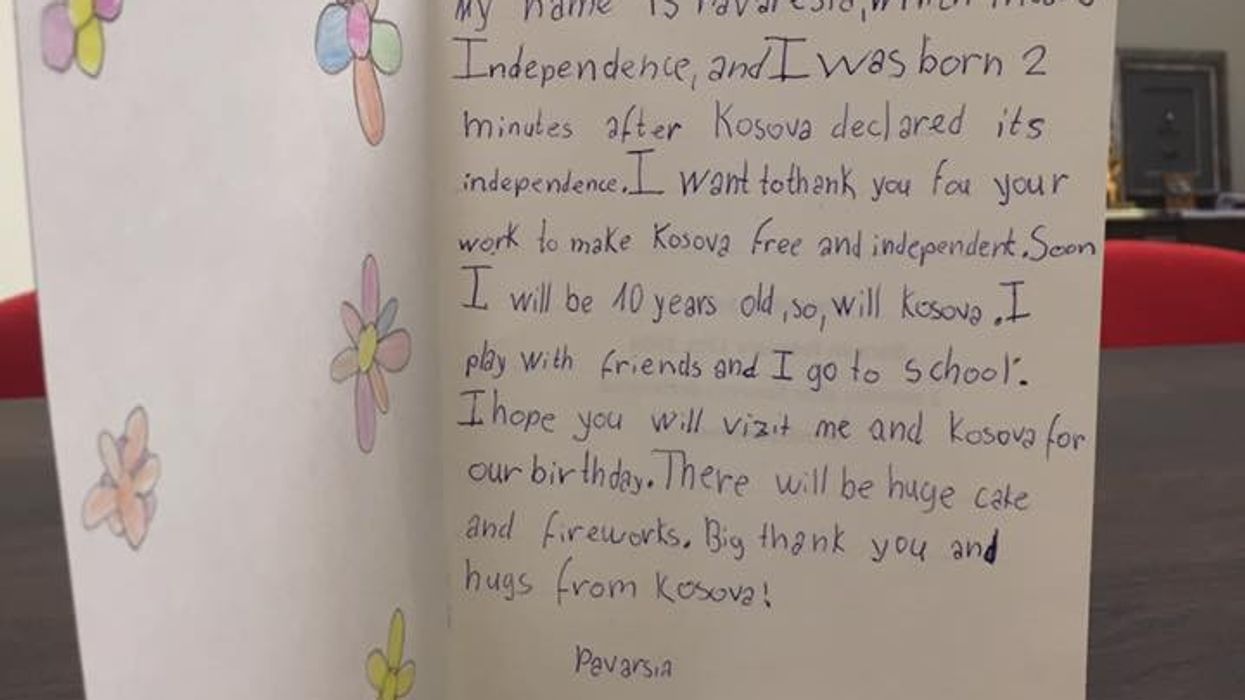 My name is Pavarësia, which means
Independence, and I was born 2
minutes after Kosova declared its
independence. I want to thank you fou your
work to make Kosova free and independent. Soon
I will be 10 years old, so, will Kosova. I
play with friends and I go to school.
I hope you will vizit me and Kosova for
our birthday. There will be huge cake
and fireworks. Big thank you and
hugs from Kosova!
Pavarsia